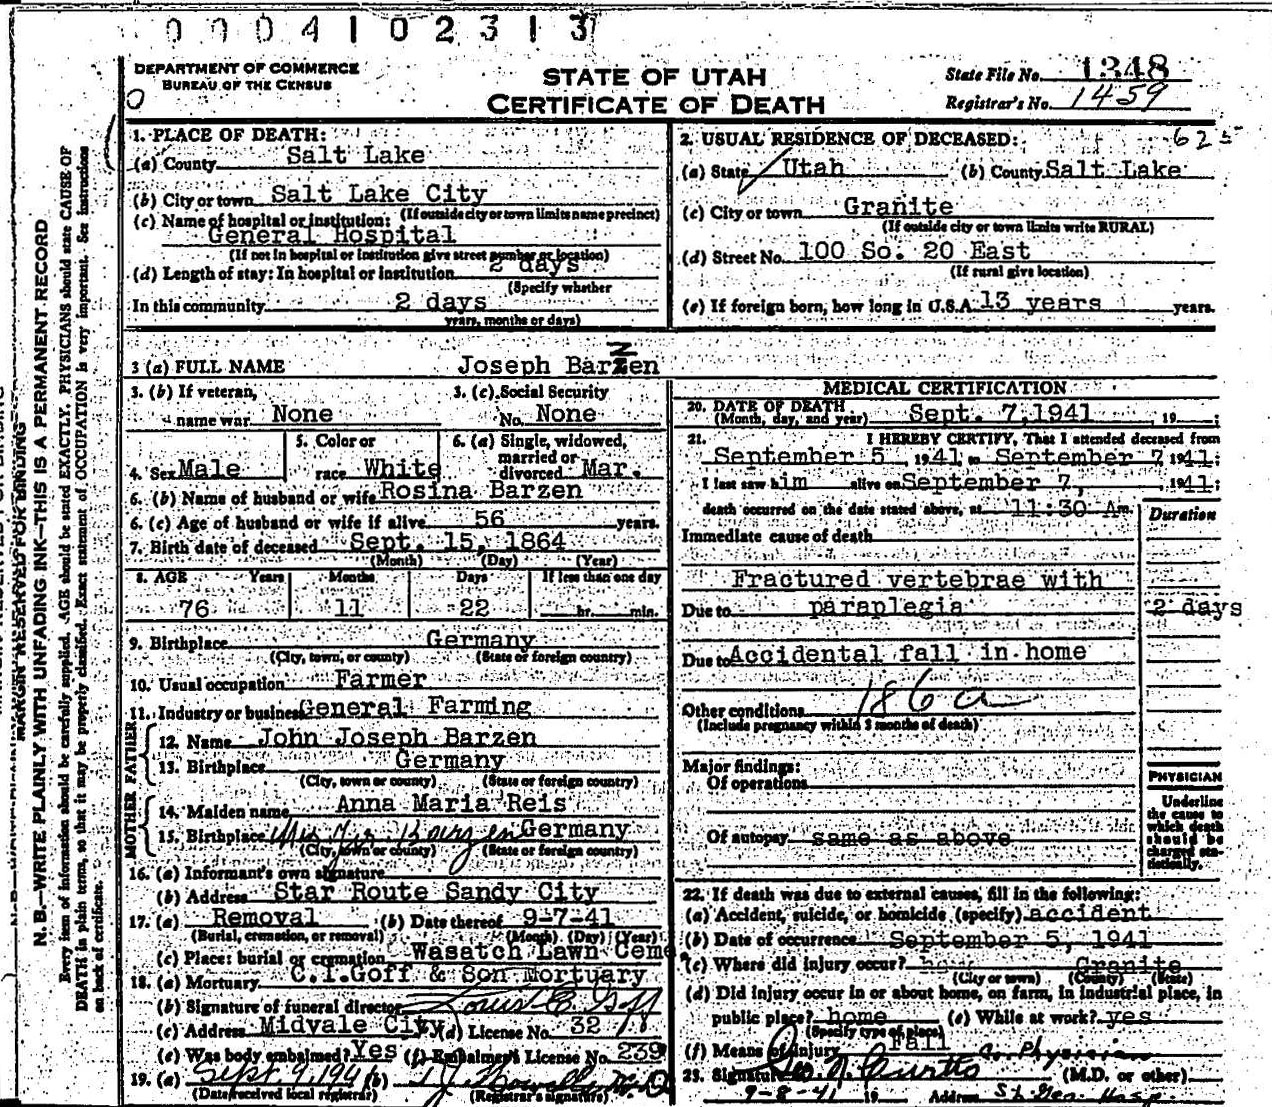 0004102313
DEPARTMENT OF COMMERCE
BUREAU OF THE CENSUS
STATE OF UTAH
CERTIFICATE OF DEATH
State File No. 1348
Registrar's No. 1459
1. PLACE OF DEATH:
(a) County Salt Lake
(b) City or town Salt Lake City
(If outside city or town limits name precinct)
(c) Name of hospital or institution:
General Hospital
(If not in hospital or institution give street number or location)
(d) Length of stay: In hospital or institution 2 days
(Specify whether
In this community 2 days
years, months or days)
2. USUAL RESIDENCE OF DECEASED: 625
(a) State Utah (b) County Salt Lake
(c) City or town Granite
(If outside city or town limits write RURAL)
(d) Street No. 100 So. 20 East
(If rural give location)
(e) If foreign born, how long in U.S.A. 13 years years.
3 (a) FULL NAME Joseph Barzen
3. (b) If veteran, name war None
3. (c) Social Security No. None
4. Sex Male
5. Color or race White
6. (a) Single, widowed, married or divorced Mar.
6. (b) Name of husband or wife Rosina Barzen
6. (c) Age of husband or wife if alive 56 years.
7. Birth date of deceased Sept. 15, 1864
(Month) (Day) (Year)
8. AGE Years Months Days If less than one day
76 11 22 hr. min.
9. Birthplace Germany
(City, town, or county) (State or foreign country)
10. Usual occupation Farmer
11. Industry or business General Farming
FATHER
12. Name John Joseph Barzen
13. Birthplace Germany
(City, town or county) (State or foreign country)
MOTHER
14. Maiden name Anna Maria Reis
15. Birthplace Germany
(City, town or county) (State or foreign country)
Mrs Jos. Barzen
16. (a) Informant's own signature
(b) Address Star Route Sandy City
17. (a) Removal (b) Date thereof 9-7-41
(Burial, cremation, or removal) (Month) (Day) (Year)
(c) Place: burial or cremation Wasatch Lawn Ceme
18. (a) Mortuary C.T.Goff & Son Mortuary
(b) Signature of funeral director Louis C. Goff
(c) Address Midvale City (d) License No. 32
(e) Was body embalmed? Yes (f) Embalmer's License No. 239
19. (a) Sept. 9, 1941 (b)
(Date received local registrar) (Registrar's signature)
MEDICAL CERTIFICATION
20. DATE OF DEATH Sept. 7, 1941 19
(Month, day, and year)
21. I HEREBY CERTIFY, That I attended deceased from
September 5, 1941 to September 7, 1941;
I last saw him alive on September 7, 1941;
death occurred on the date stated above, at 11:30 Am.
Duration
Immediate cause of death
Fractured vertebrae with
Due to paraplegia 2 days
Due to Accidental fall in home
186a
Other conditions
(Include pregnancy within 3 months of death)
Major findings:
Of operations
Of autopsy same as above
PHYSICIAN
Underline the cause to which death should be charged statistically.
22. If death was due to external causes, fill in the following:
(a) Accident, suicide, or homicide (specify) accident
(b) Date of occurrence September 5, 1941
(c) Where did injury occur? Granite
(City or town) (County) (State)
(d) Did injury occur in or about home, on farm, in industrial place, in
public place? home (e) While at work? yes
(Specify type of place)
(f) Means of injury Fall
23. Signature Geo. N. Curtis (M.D. or other)
9-8-41 19 Address
N. B.—WRITE PLAINLY WITH UNFADING INK—THIS IS A PERMANENT RECORD
MARGIN RESERVED FOR BINDING
Every item of information should be carefully supplied. AGE should be stated EXACTLY. PHYSICIANS should state CAUSE OF
DEATH in plain terms, so that it may be properly classified. Exact statement of OCCUPATION is very important. See instructions
on back of certificate.